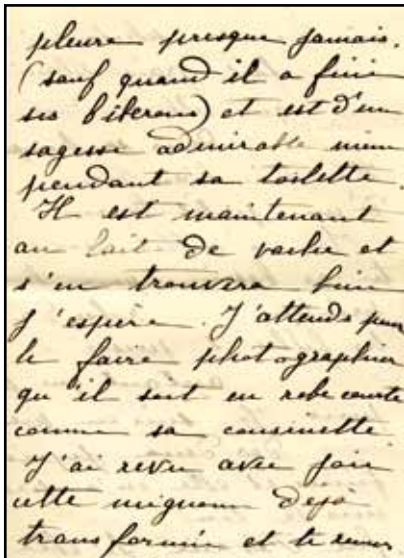 pleure presque jamais.
(sauf quand il a fini
ses biberons) et est d'une
sagesse admirable même
pendant sa toilette.
Il est maintenant
au lait de vache et
s'en trouvera bien
j'espère. J'attends pour
le faire photographier
qu'il soit en robe courte
comme sa cousinette.
J'ai revu avec joie
cette mignonne déjà
transformée et te remer